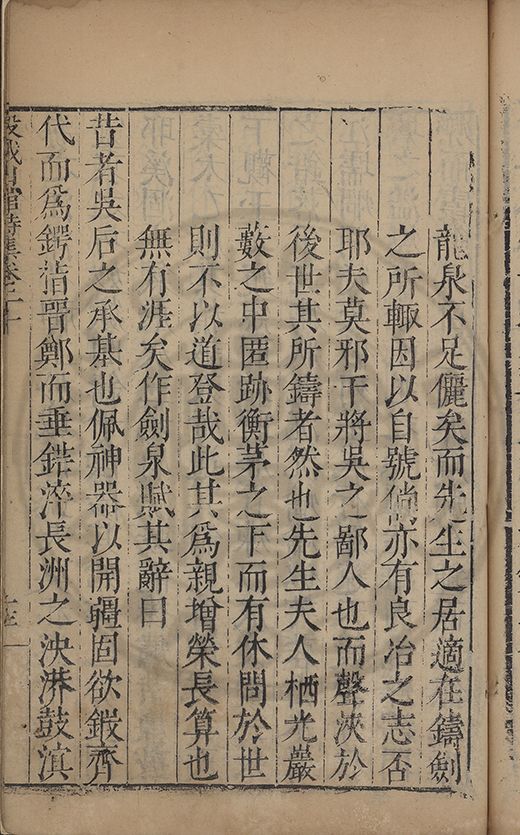 龍泉不足儷矣而先生之居適在鑄劍
之所輙因以自號倘亦有良冶之志否
耶夫莫邪干將吳之鄙人也而聲浹於
後世其所鑄者然也先生夫人栖光巖
藪之中匿跡衡茅之下而有休問於世
則不以道登哉此其為親增榮長算也
無有涯矣作劍泉賦其辭曰
昔者吳后之承基也佩神器以開疆固欲鍛齊
代而爲鍔𣻜晉鄭而垂鋩淬長洲之泱漭鼓滇
山館詩集卷之二十